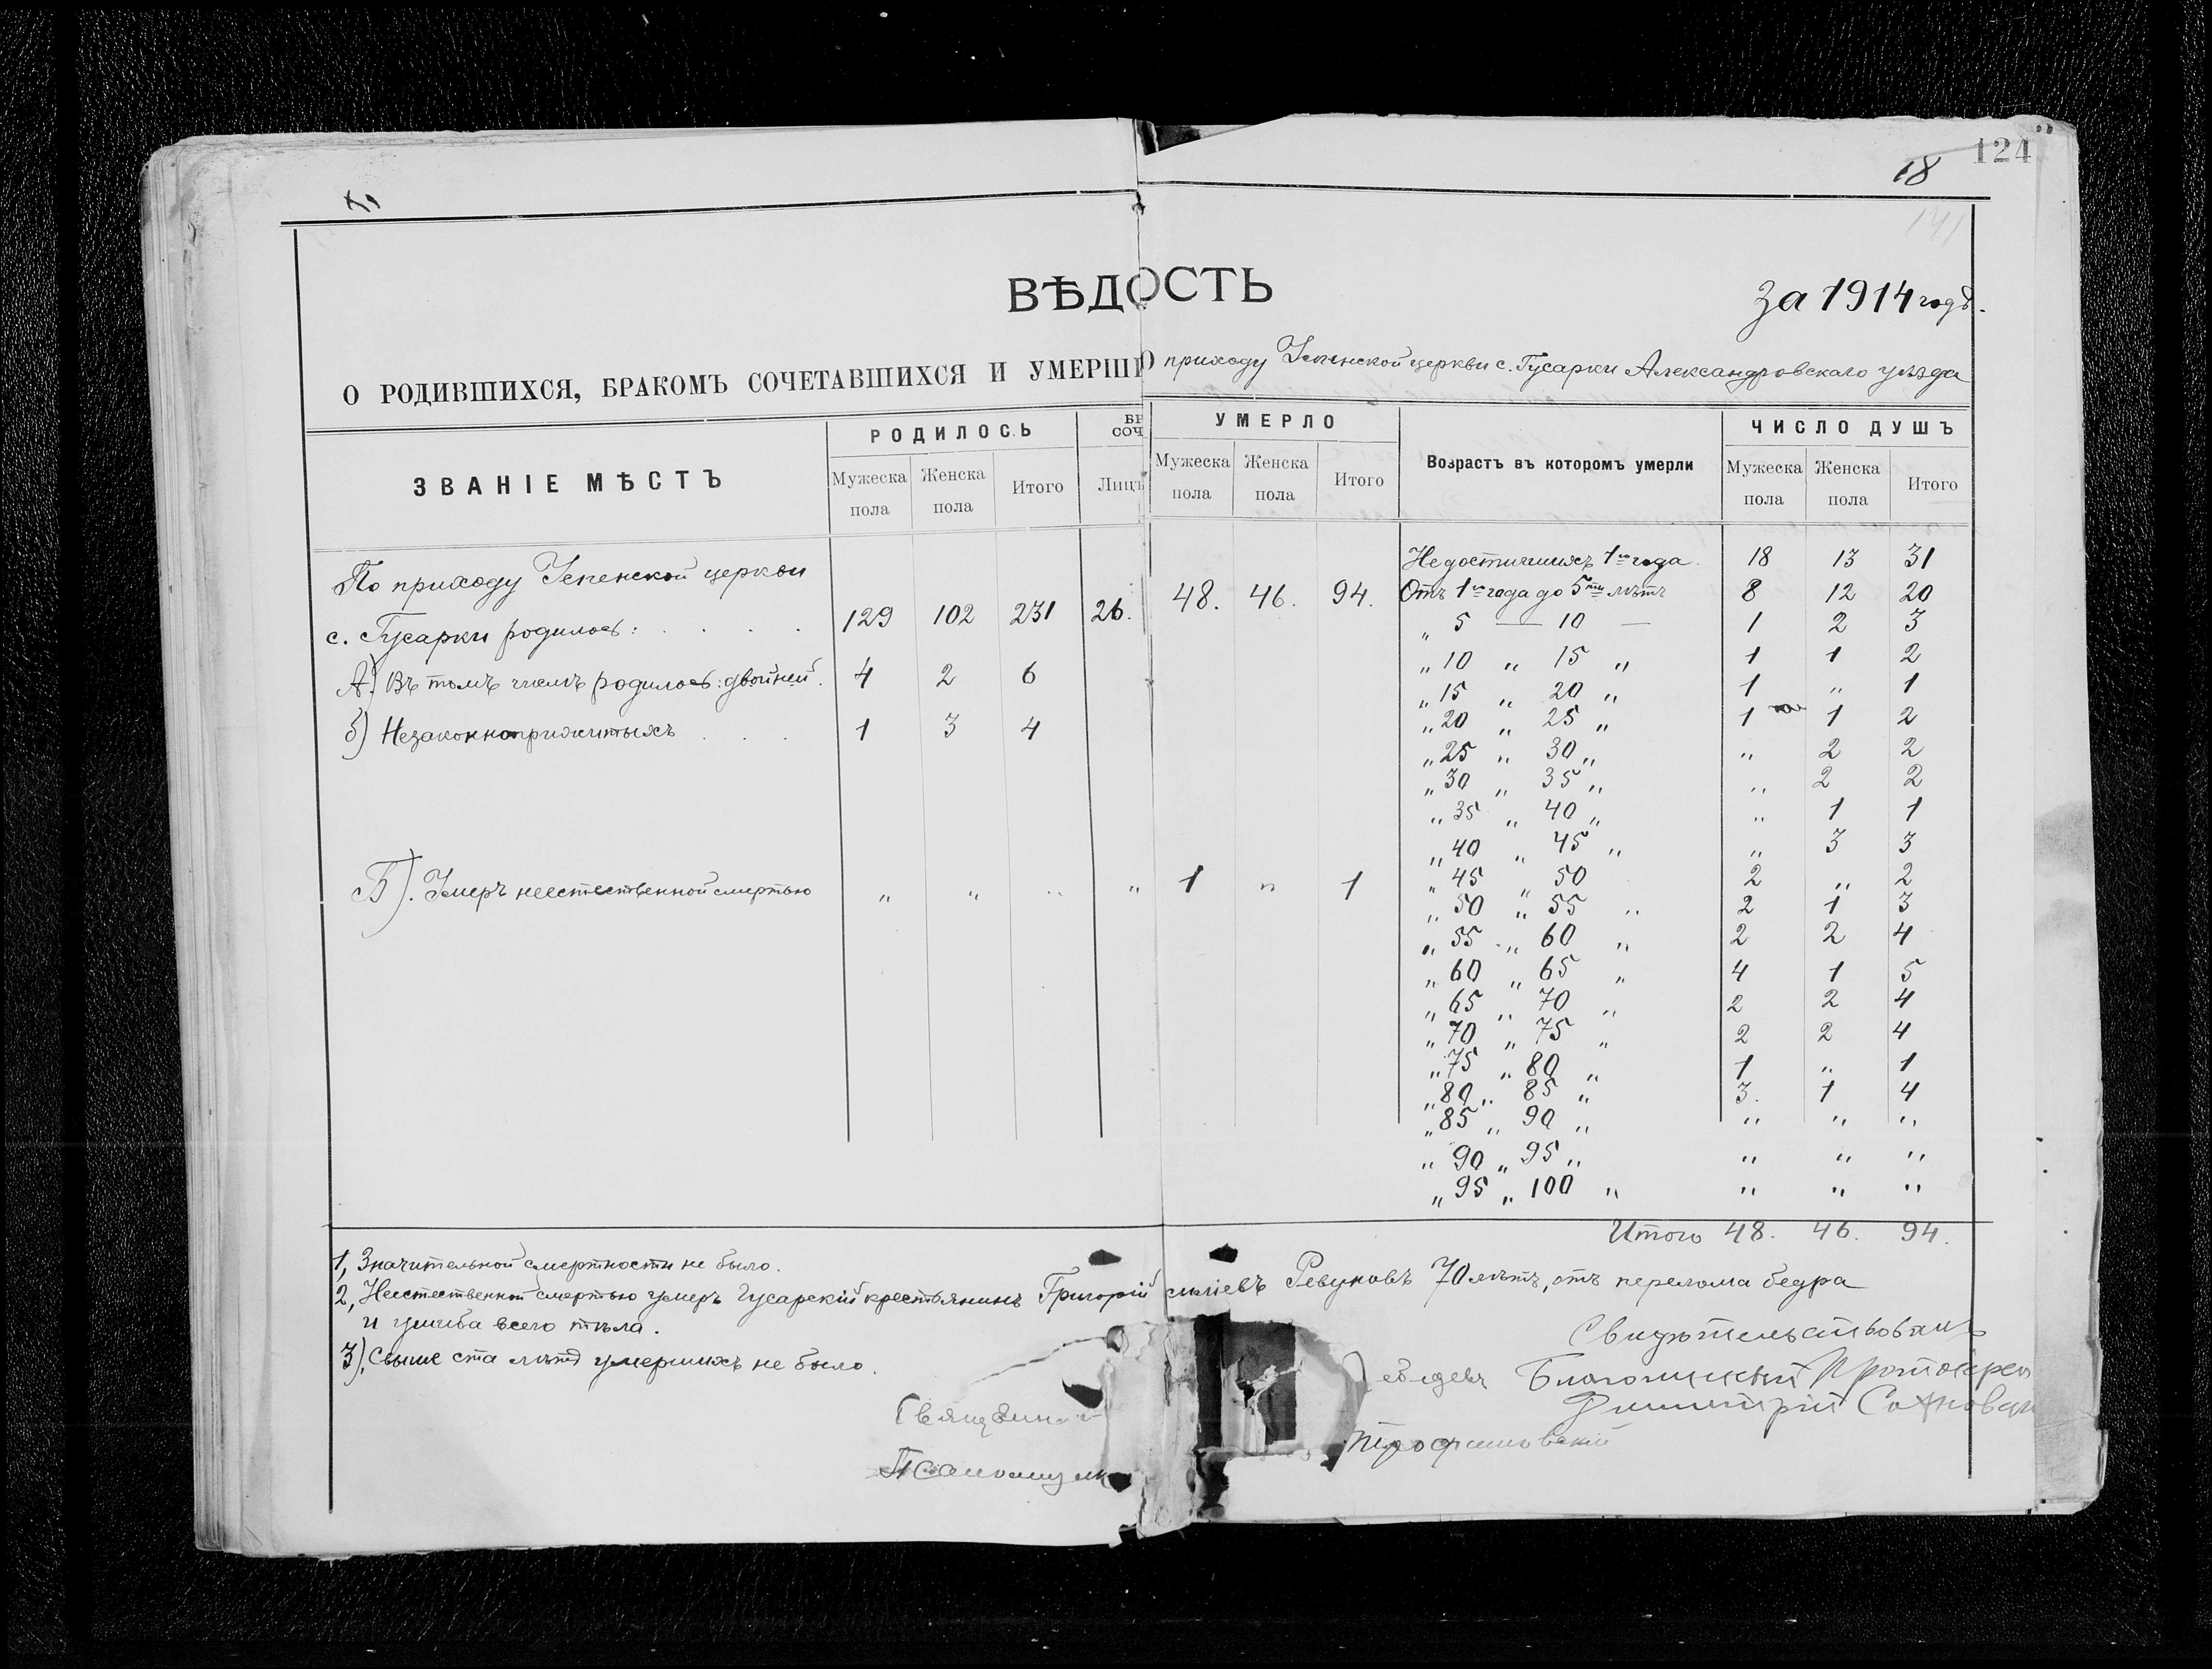 124
18
141
ВѢДОСТЬ
За 1914 годъ.
О РОДИВШИХСЯ, БРАКОМЪ СОЧЕТАВШИХСЯ И УМЕРШИ
О приходу Успенской церкви с. Гусарки Александровскаго уѣзда
ЗВАНІЕ МѢСТЪ
РОДИЛОСЬ
БР
СОЧ
УМЕРЛО
Возрастъ въ которомъ умерли
ЧИСЛО ДУШЪ
Мужеска пола Женска пола Итого Лицъ Мужеска пола Женска пола Итого Мужеска пола Женска пола Итого
По приходу Успенской церкви
с. Гусарки родилось: . . . . 129 102 231 26. 48. 46. 94.
А.) Въ томъ числѣ родилось: двойней. 4 2 6
б) Незаконноприжитыхъ . . . 1 3 4
Б). Умеръ неестественной смертью „ „ „ „ 1 „ 1
Недостигшихъ 1го года. 18 13 31
Отъ 1го года до 5ти лѣтъ 8 12 20
„ 5 — 10 — 1 2 3
„ 10 „ 15 „ 1 1 2
„ 15 „ 20 „ 1 „ 1
„ 20 „ 25 „ 1 1 2
„ 25 „ 30 „ „ 2 2
„ 30 „ 35 „ „ 2 2
„ 35 „ 40 „ „ 1 1
„ 40 „ 45 „ „ 3 3
„ 45 „ 50 2 „ 2
„ 50 „ 55 „ 2 1 3
„ 55 „ 60 „ 2 2 4
„ 60 „ 65 „ 4 1 5
„ 65 „ 70 „ 2 2 4
„ 70 „ 75 „ 2 2 4
„ 75 „ 80 „ 1 „ 1
„ 80 „ 85 „ 3. 1 4
„ 85 „ 90 „ „ „ „
„ 90 „ 95 „ „ „ „
„ 95 „ 100 „ „ „ „
Итого 48. 46. 94.
1, Значительной смертности не было.
2, Неестественной смертью умеръ Гусарскій крестьянинъ Григорій Ревуновъ 70 лѣтъ, отъ перелома бедра
и ушиба всего тѣла.
3), Свыше ста лѣтъ умершихъ не было.
Свидѣтельствовалъ
Благочинный Протоіерей
Димитрій
Священни
Псаломщик Трофимовскій